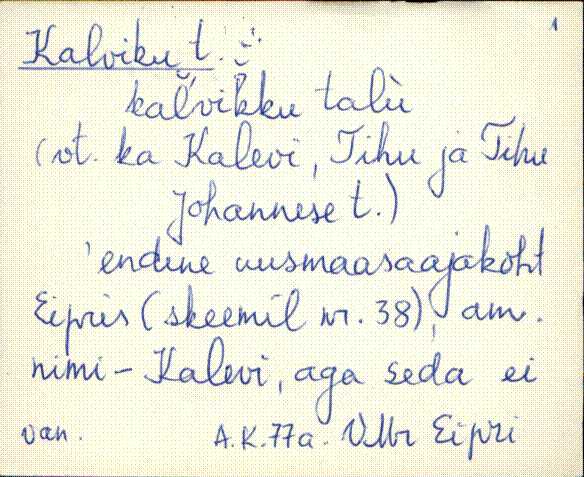 1
Kalviku t.
kal̆'vik̆ku talù
(vt. ka Kalevi, Tihu ja Tihu
Johannese t.)
'endine uusmaasaajakoht
Eipris (skeemil nr. 38), am.
nimi - Kalevi, aga seda ei
van. A.K. 77a. VMr Eipri